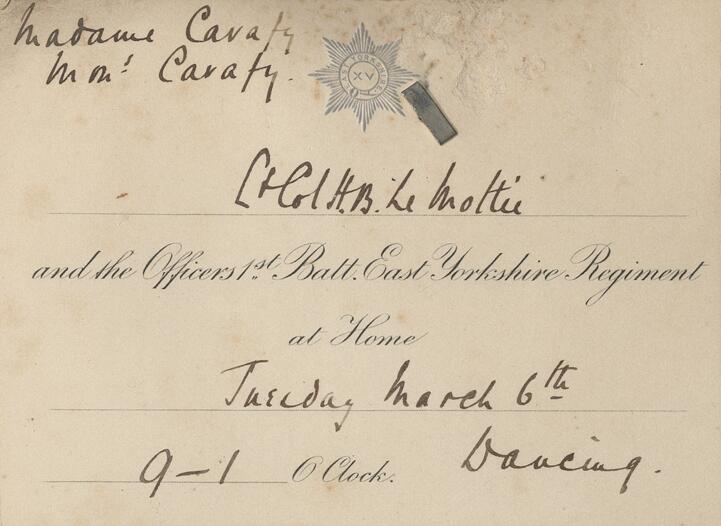 Madame Cavafy
Monˢ Cavafy.
EAST YORKSHIRE
XV
Lt Col H.B. Le Mottée
and the Officers 1st Batt. East Yorkshire Regiment
at Home
Tuesday March 6th
9-1 O'Clock. Dancing.